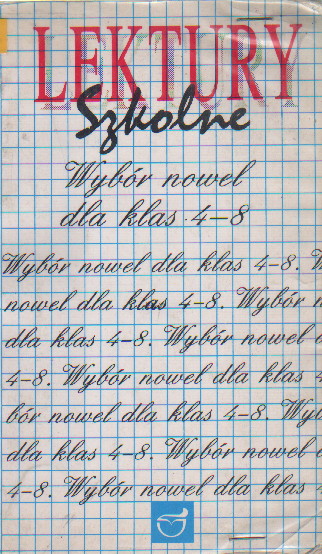 LEKTURY
Szkolne
Wybór nowel
dla klas 4-8
Wybór nowel dla klas 4-8. W
nowel dla klas 4-8. Wybór n
dla klas 4-8. Wybór nowel d
4-8. Wybór nowel dla klas 4
bór nowel dla klas 4-8. Wy
dla klas 4-8. Wybór nowel d
4-8. Wybór nowel dla klas 4